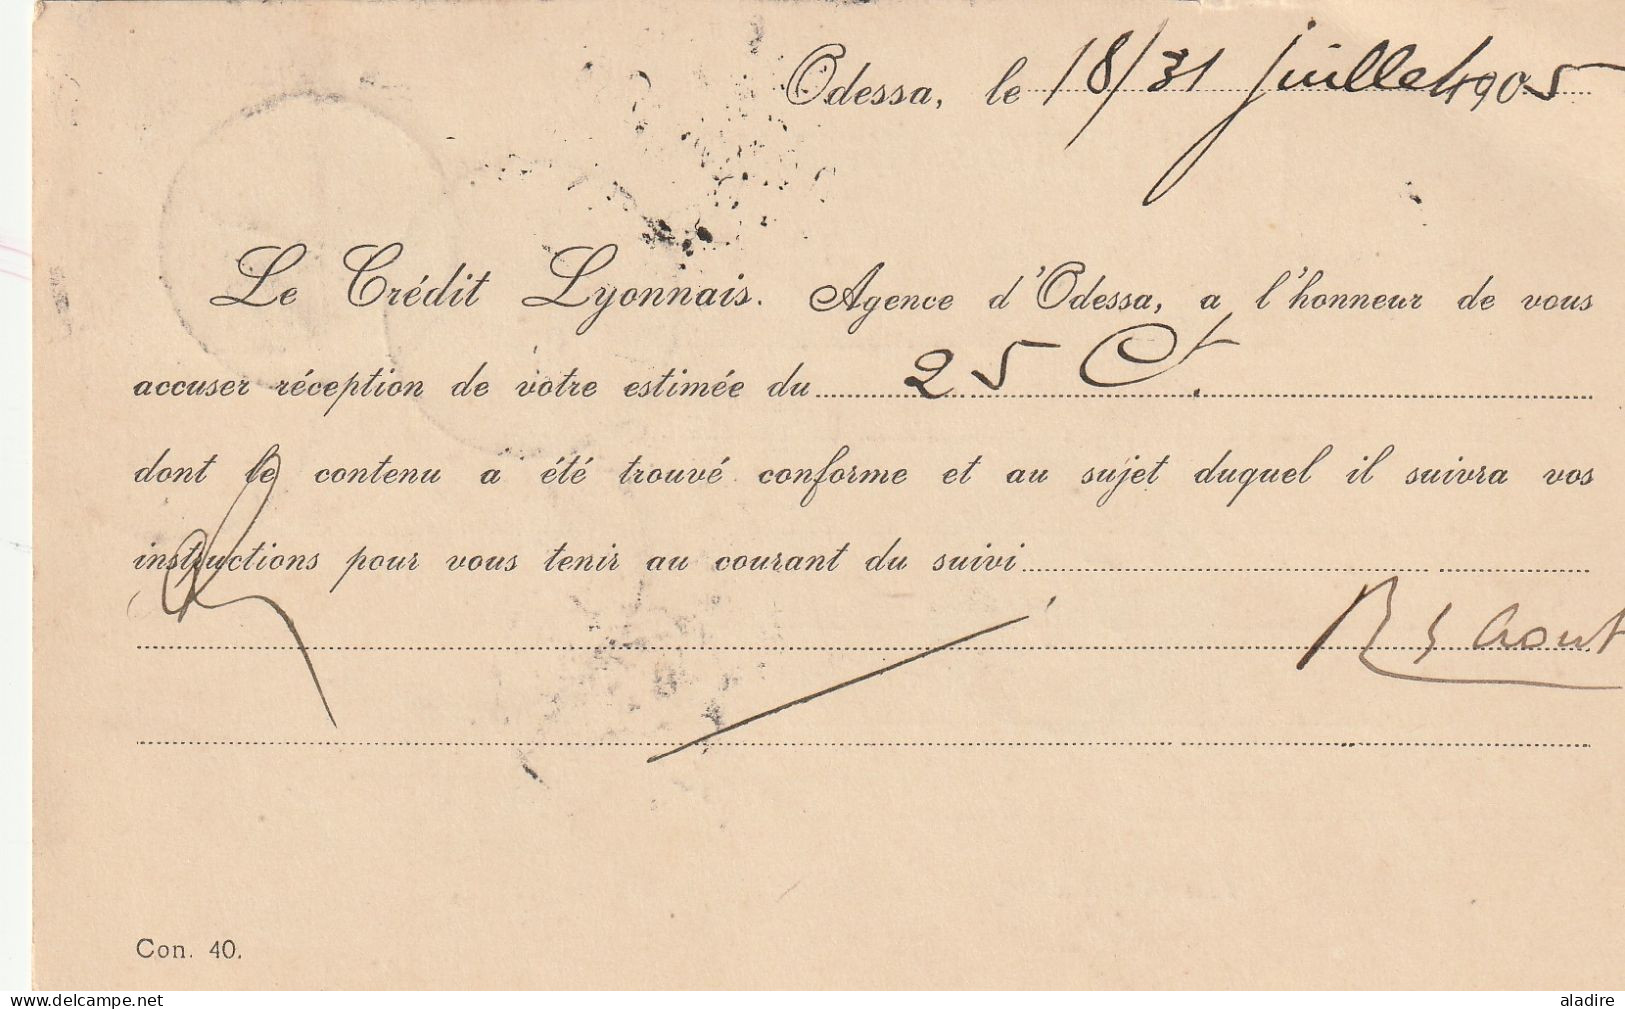 Odessa, le 18/31 juillet 1905
Le Crédit Lyonnais. Agence d'Odessa, a l'honneur de vous
accuser réception de votre estimée du 25 Ct.
dont le contenu a été trouvé conforme et au sujet duquel il suivra vos
instructions pour vous tenir au courant du suivi
R 5 Aout
Con. 40.
delcampe.net
aladire